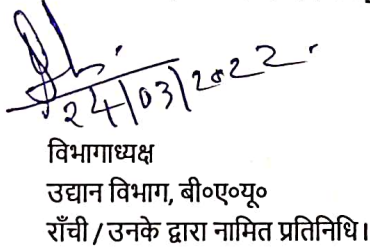 24/03/2022
विभागाध्यक्ष
उद्यान विभाग, बी०ए०यू०
राँची / उनके द्वारा नामित प्रतिनिधि।